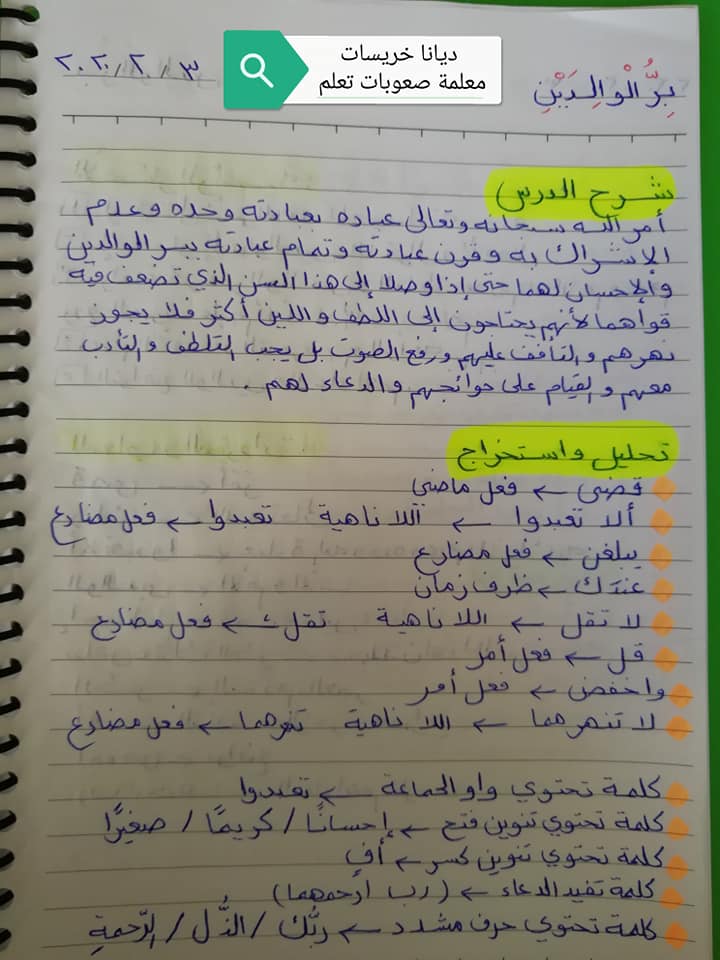 ديانا خريسات
معلمة صعوبات تعلم
٣ / ٢ / ٢٠٢٠
بِرُّ الْوَالِدَيْنِ
شرح الدرس
أمر الله سبحانه وتعالى عباده بعبادته وحده وعدم
الإشراك به وقرن عبادته وتمام عبادته ببر الوالدين
والإحسان لهما حتى إذا وصلا إلى هذا السن الذي تضعف فيه
قواهما لأنهم يحتاجون إلى اللطف واللين أكثر فلا يجوز
نهرهم والتأفف عليهم ورفع الصوت بل يجب التلطف والتأدب
معهم والقيام على حوائجهم والدعاء لهم .
تحليل واستخراج
قضى ← فعل ماضي
ألا تعبدوا ← ألا ناهية تعبدوا ← فعل مضارع
يبلغن ← فعل مضارع
عندك ← ظرف زمان
لا تقل ← اللا ناهية تقل ← فعل مضارع
قل ← فعل أمر
واخفض ← فعل أمر
لا تنهرهما ← اللا ناهية تنهرهما ← فعل مضارع
كلمة تحتوي واو الجماعة ← تعبدوا
كلمة تحتوي تنوين فتح ← إحسانًا / كريمًا / صغيرًا
كلمة تحتوي تنوين كسر ← أفٍ
كلمة تفيد الدعاء ← (رب ارحمهما)
كلمة تحتوي حرف مشدد ← ربُّك / الذُّل / الرَّحمةِ